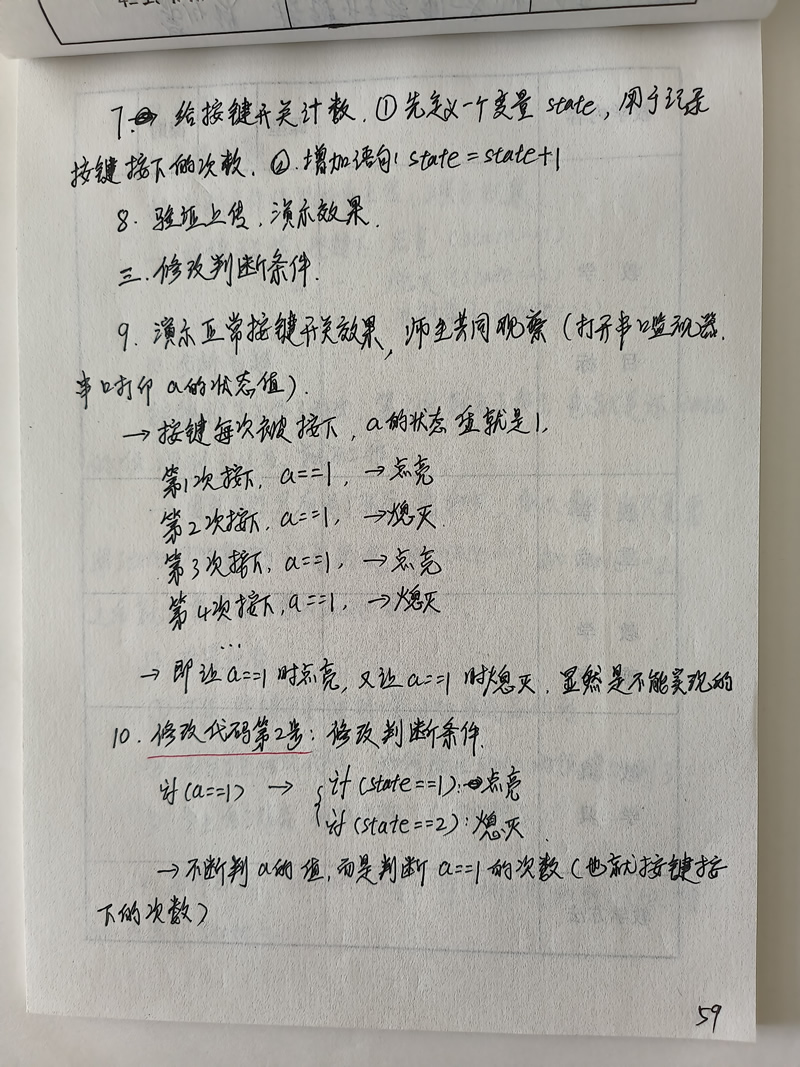 7. 给按键开关计数. ① 先定义一个变量 state, 用于记录
按键按下的次数. ②. 增加语句: state=state+1
8. 验证上传, 演示效果.
三. 修改判断条件.
9. 演示正常按键开关效果, 师生共同观察 (打开串口监视器.
串口打印 a的状态值).
→ 按键每次被按下, a的状态值就是1,
第1次按下, a==1, →点亮
第2次按下, a==1, →熄灭.
第3次按下, a==1, →点亮
第4次按下, a==1, →熄灭
...
→ 即让 a==1 时点亮, 又让 a==1 时熄灭, 显然是不能实现的
10. 修改代码第2步: 修改判断条件.
if (a==1) → { if (state==1): 点亮
if (state==2): 熄灭
→不断判a的值, 而是判断 a==1 的次数 (也就按键按
下的次数)
59